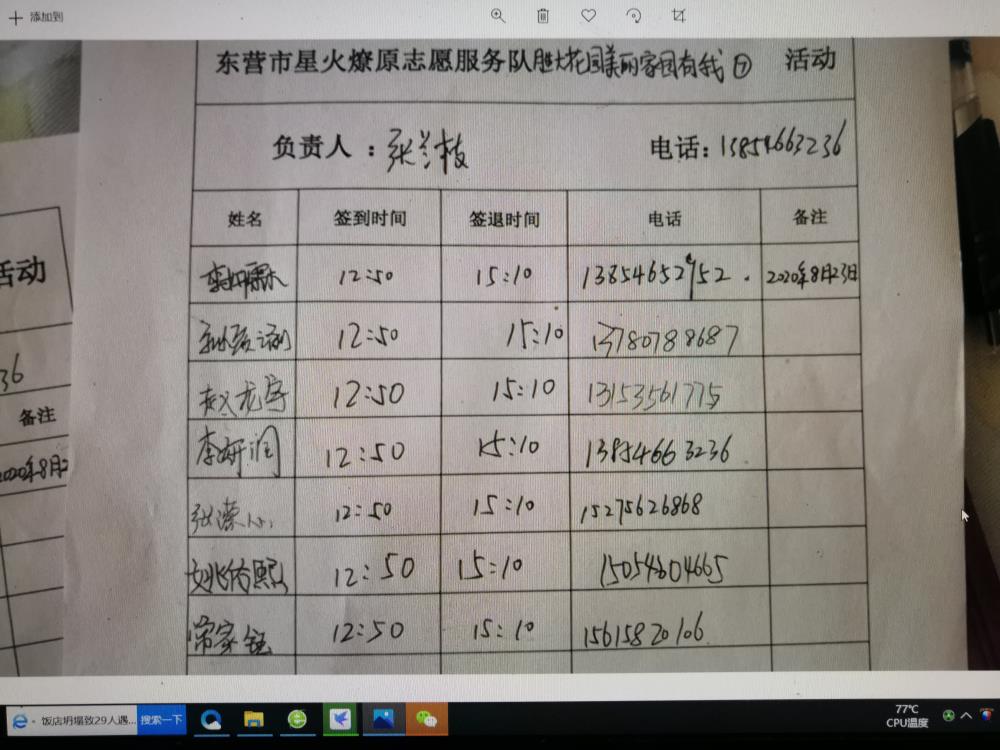 添加到
东营市星火燎原志愿服务队胜大花园美丽家园有我⑦ 活动
负责人：张兰枝 电话：13854663236
姓名 签到时间 签退时间 电话 备注
12:50 15:10 13854652952. 2020年8月23日
12:50 15:10 13780788687
赵龙宇 12:50 15:10 13153561775
李妍润 12:50 15:10 13854663236
张 12:50 15:10 15275626868
姚依熙 12:50 15:10 15054604665
常家钰 12:50 15:10 15615820106
活动
36
备注
2020年8月2
饭店坍塌致29人遇... 搜索一下
77℃
CPU温度